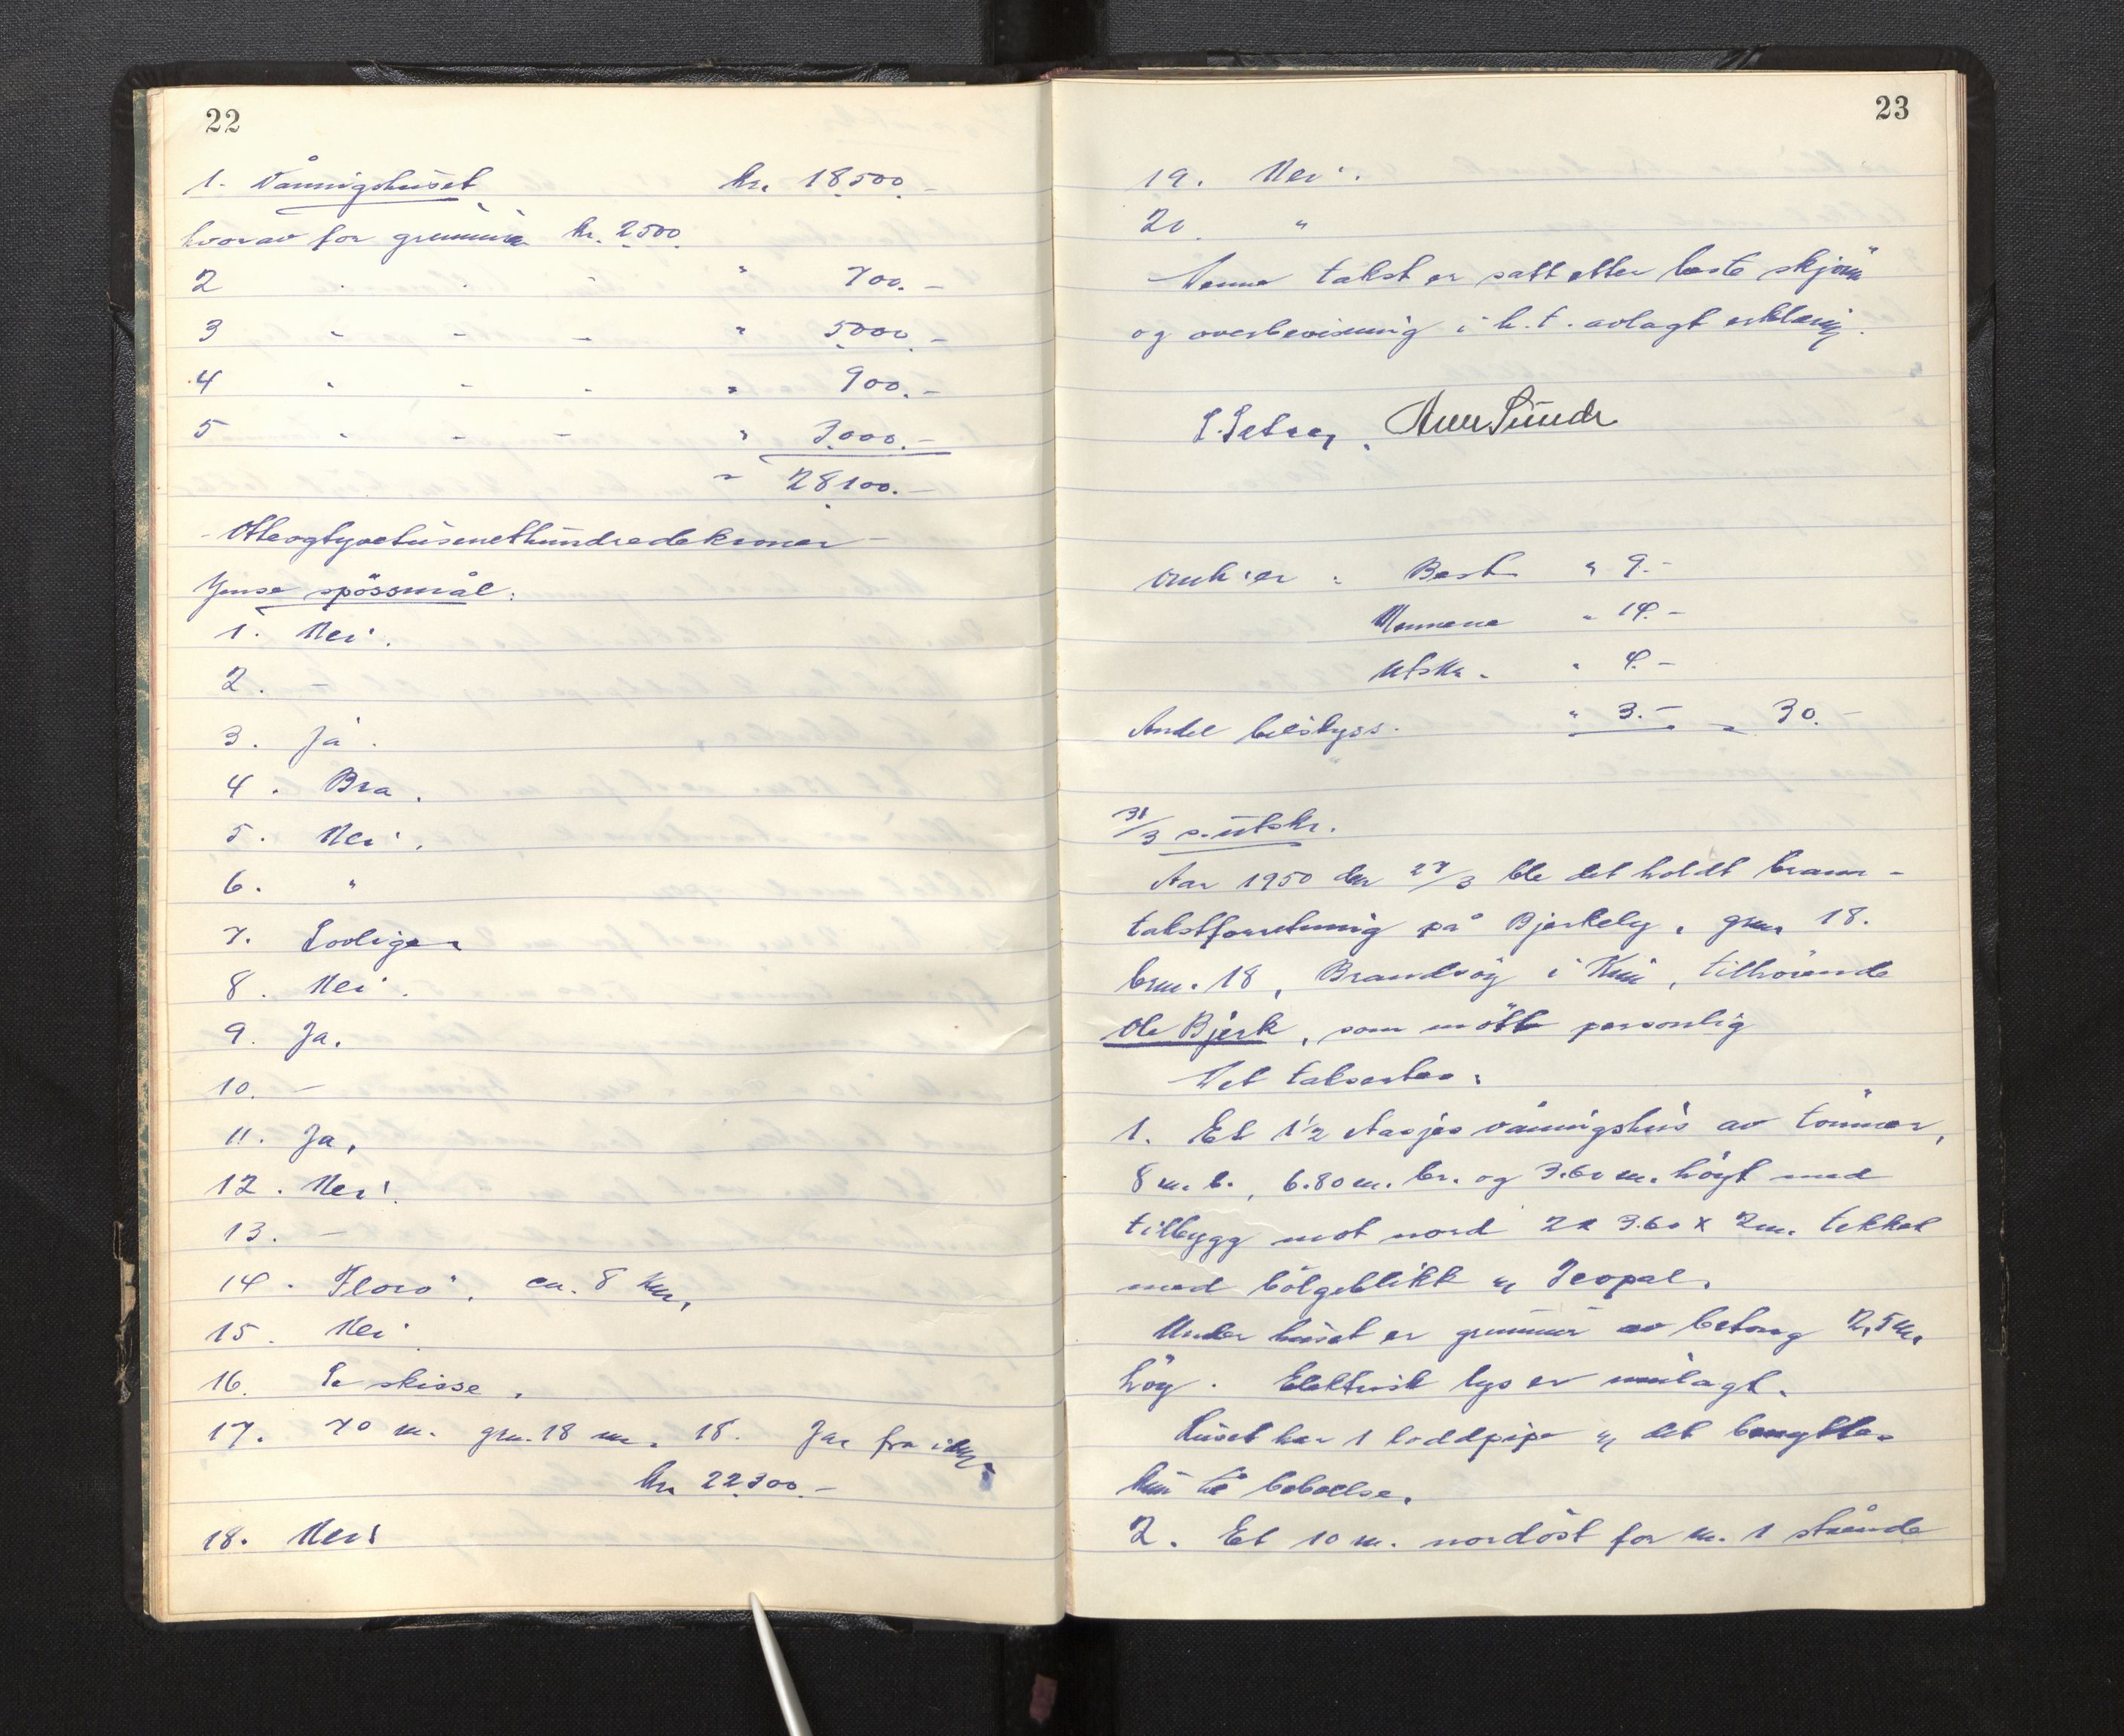 22
1. Våningshuset kr. 18.500.-
hvorav for grunnmur kr. 2500.
2 - - - " 700.-
3 - - - " 5.000.-
4 - - - " 900.-
5 - - - " 3.000.-
" 28.100.-
- Otteogtyvetusenethundredekroner -
Jmse spössmål:
1. Nei.
2. -
3. Ja.
4. Bra.
5. Nei.
6. "
7. Lovlige
8. Nei.
9. Ja.
10. -
11. Ja.
12. Nei.
13. -
14. Florö, ca. 8 km.
15. Nei
16. Se skisse.
17. 70 m. grn. 18 nr. 18. Jar fra
kr. 22.300.-
18. Nei
23
19. Nei.
20. "
Denne takst er satt etter beste skjönn
og overbevisning i h.t. avlagt erklæring.
Omk'er : Best " 9.-
Mennene " 14.-
Utskr. " 4.-
Andel bilskyss. " 3.- = 30.-
31/3 s. utskr.
Aar 1950 den 27/3 ble det holdt brann-
takstforretning på Bjerkely, grn. 18.
brn. 18, Brandsöy i Kinn, tilhörende
Ole Bjerk, som mötte personlig
Det takseres:
1. Et 1 1/2 etasjes våningshus av tömmer,
8 m. l., 6.80 m. br. og 3.60 m. höyt med
tilbygg mot nord 2 x 3.60 x 2 m. tekket
med bölgeblikk og Icopal.
Under huset er grunnmur av betong 2,5 m.
höy. Elektrisk lys er innlagt.
Huset har 1 loddpipe og det benyttes
kun til beboelse.
2. Et 10 m. nordöst for nr. 1 stående